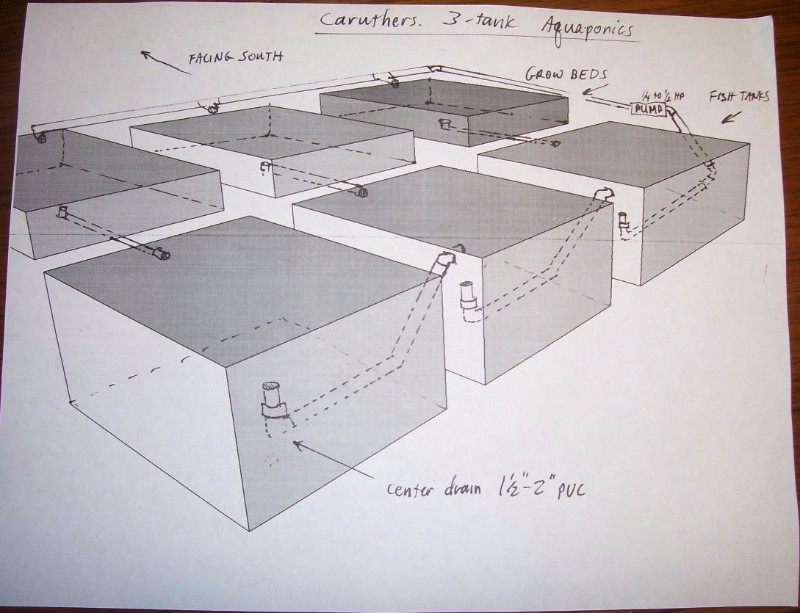 Caruthers. 3-tank Aquaponics
FACING SOUTH
GROW BEDS
1/4 to 1/2 HP
PUMP
FISH TANKS
center drain 1 1/2"-2" PVC